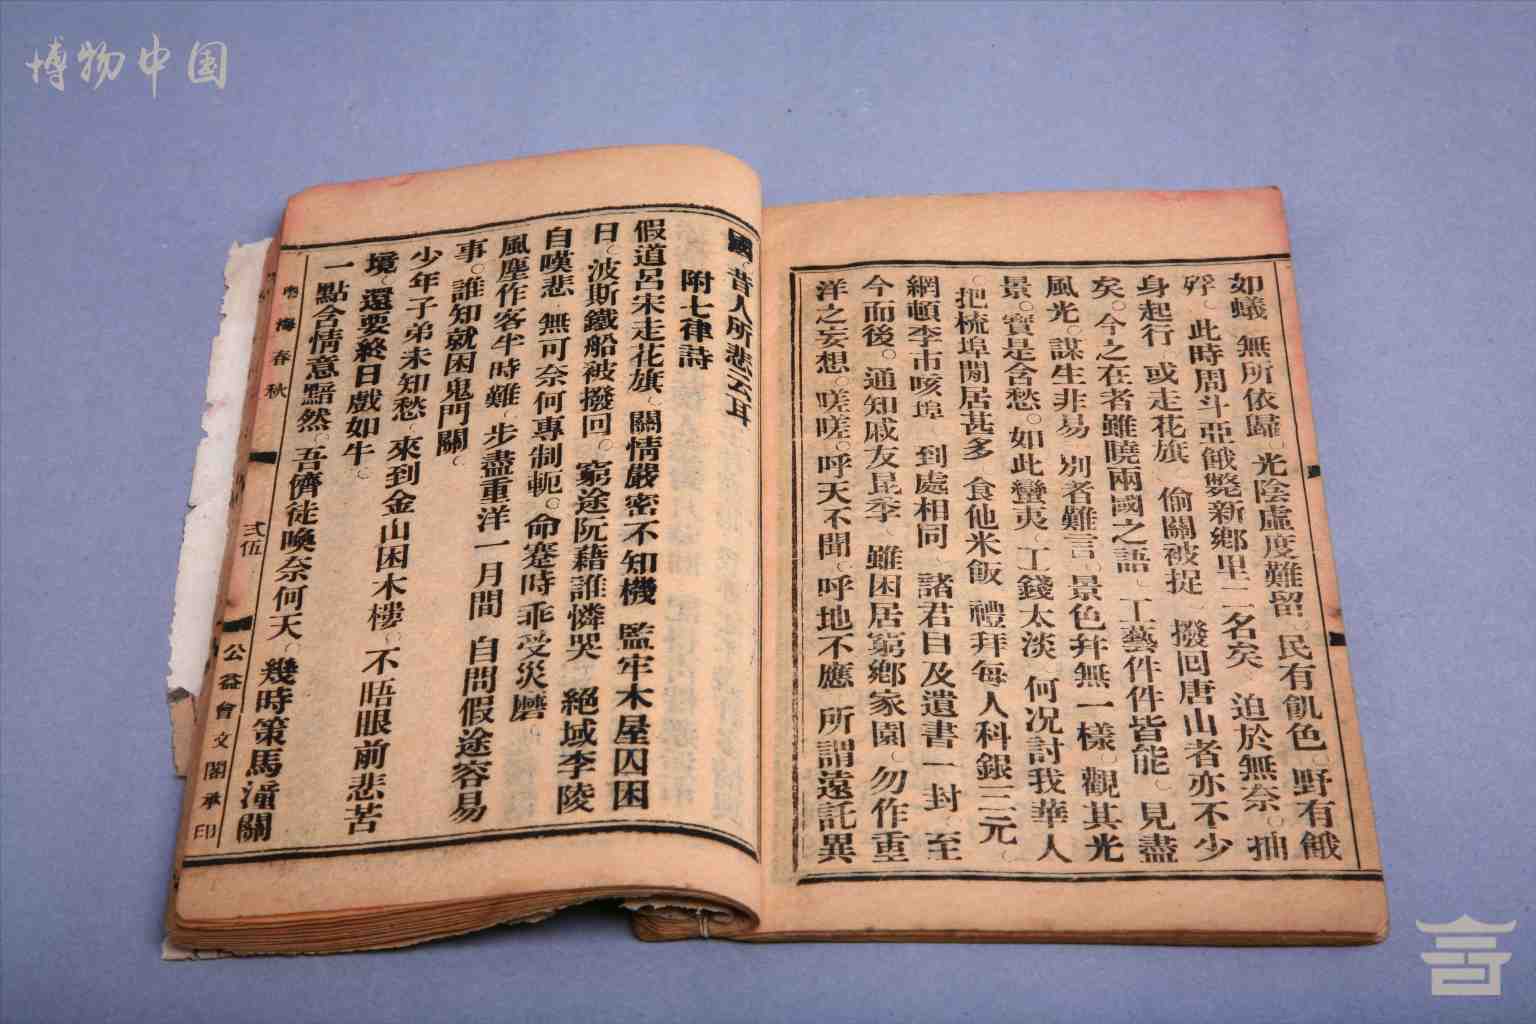 博物中国
如蟻 無所依歸。光陰虛度難留。民有飢色。野有餓
殍。此時周斗亞餓斃新鄉里二名矣 迫於無奈。抽
身起行 或走花旗 偷關被捉 撥回唐山者亦不少
矣。今之在者雖曉兩國之語 工藝件件皆能 見盡
風光。謀生非易 別者難言。景色幷無一樣 觀其光
景。實是含愁。如此蠻夷 工錢太淡 何况討我華人
把梳埠閒居甚多 食他米飯 禮拜每人科銀三元
網頓李市咳埠 到處相同 諸君目及遺書一封 至
今而後。通知戚友昆季 雖困居窮鄉家園。勿作重
洋之妄想。嗟嗟。呼天不聞。呼地不應 所謂遠託異
國。昔人所悲云耳
附七律詩
假道呂宋走花旗。關情嚴密不知機 監牢木屋囚困
日。波斯鐵船被撥回。窮途阮藉誰憐哭 絕域李陵
自嘆悲 無可奈何專制軛。命蹇時乖受災磨
風塵作客半時難 步盡重洋一月間 自問假途容易
事。誰知就困鬼門關。
少年子弟未知愁。來到金山困木樓。不唔眼前悲苦
境。還要終日戲如牛。
一點含情意黯然。吾儕徒喚奈何天。幾時策馬潼關
海春秋
弍伍
公益會文閣承印